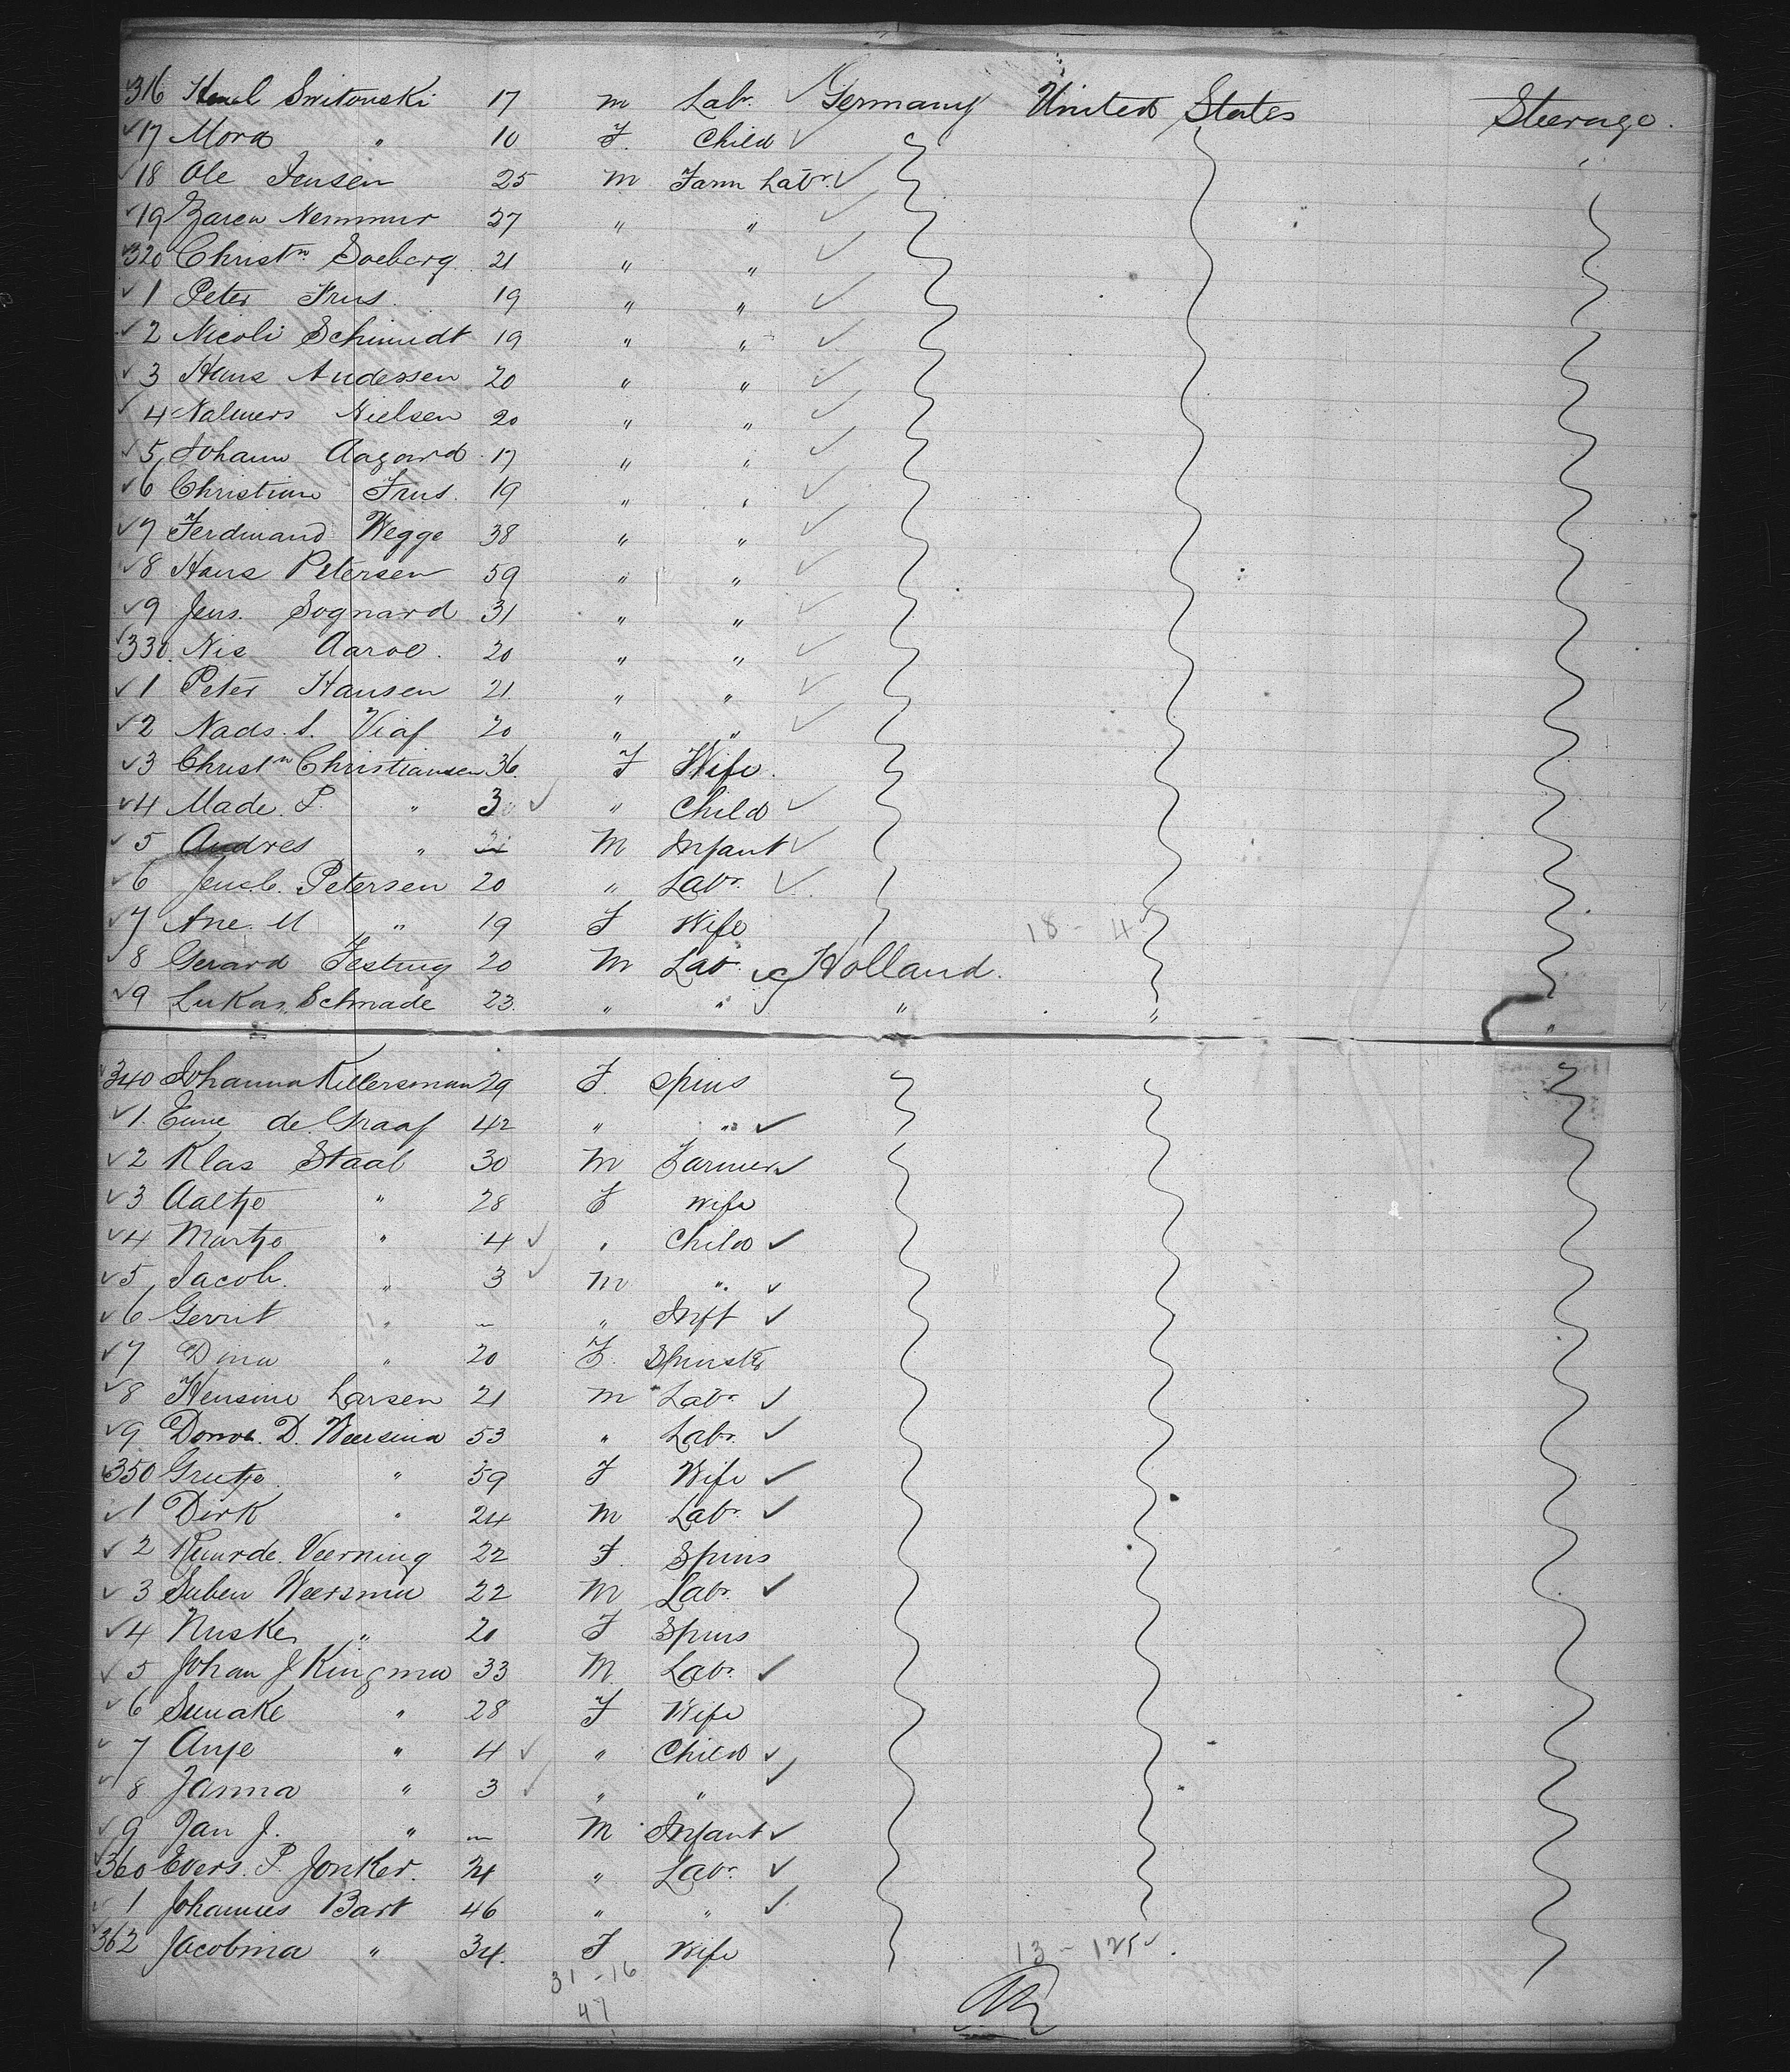 316 Switouski 17 m Labr. Germany United States Steerage.
17 Mora " 10 F. Child
18 Ole Jensen 25 m Farm Labr.
19 27 " "
320 Christn Soeberg 21 " "
1 Peter Frus. 19 " "
2 Nicoli Schmidt 19 " "
3 Hans Anderssen 20 " "
4 Nielsen 20 " "
5 Johann Aagard 17 " "
6 Christian Frus. 19 " "
7 Ferdinand Wegge 38 " "
8 Hans Petersen 59 " "
9 Jens. Sognard 31 " "
330. Nis Aaroe. 20 " "
1 Peter Hansen 21 " "
2 Nads. S. 20 " "
3 Christn Christiansen 36. F Wife.
4 Made. P. " 3 " Child
5 Andres " M Infant
6 Petersen 20 " Labr.
7 Ane. M " 19 F Wife 18 - 4
8 Gerard Festing 20 M Labr. Holland.
9 Lukas Schnade 23. " " " " "
340 Johanna Kellersman 29 F. Spins
1. de Graaf 42 " "
2 Klas Staal 30 M Farmer
3 Aaltje " 28 F Wife
4 Martje " 4 " Child
5 Jacob. " 3 M "
6 Gerrit " - " Inft
7 Dina " 20 F. Spinster
8 Hensine Larsen 21 M Labr.
9 D. Weersma 53 " Labr.
350 Grietje " 59 F Wife
1 Dirk " 24 M Labr.
2 Veerning 22 F. Spins
3 Suben Weersma 22 M Labr.
4 Nuske " 20 F Spins
5 Johan J Kingma 33 M. Labr.
6 " 28 F Wife
7 Anje " 4 " Child
8 Janna " 3 " "
9 Jan J. " - M Infant
360 Evers. P. Jonker. 24 " Labr.
1 Johannes Bart 46 " "
362 Jacobina " 34. F Wife 13 - 125
31 - 16
47